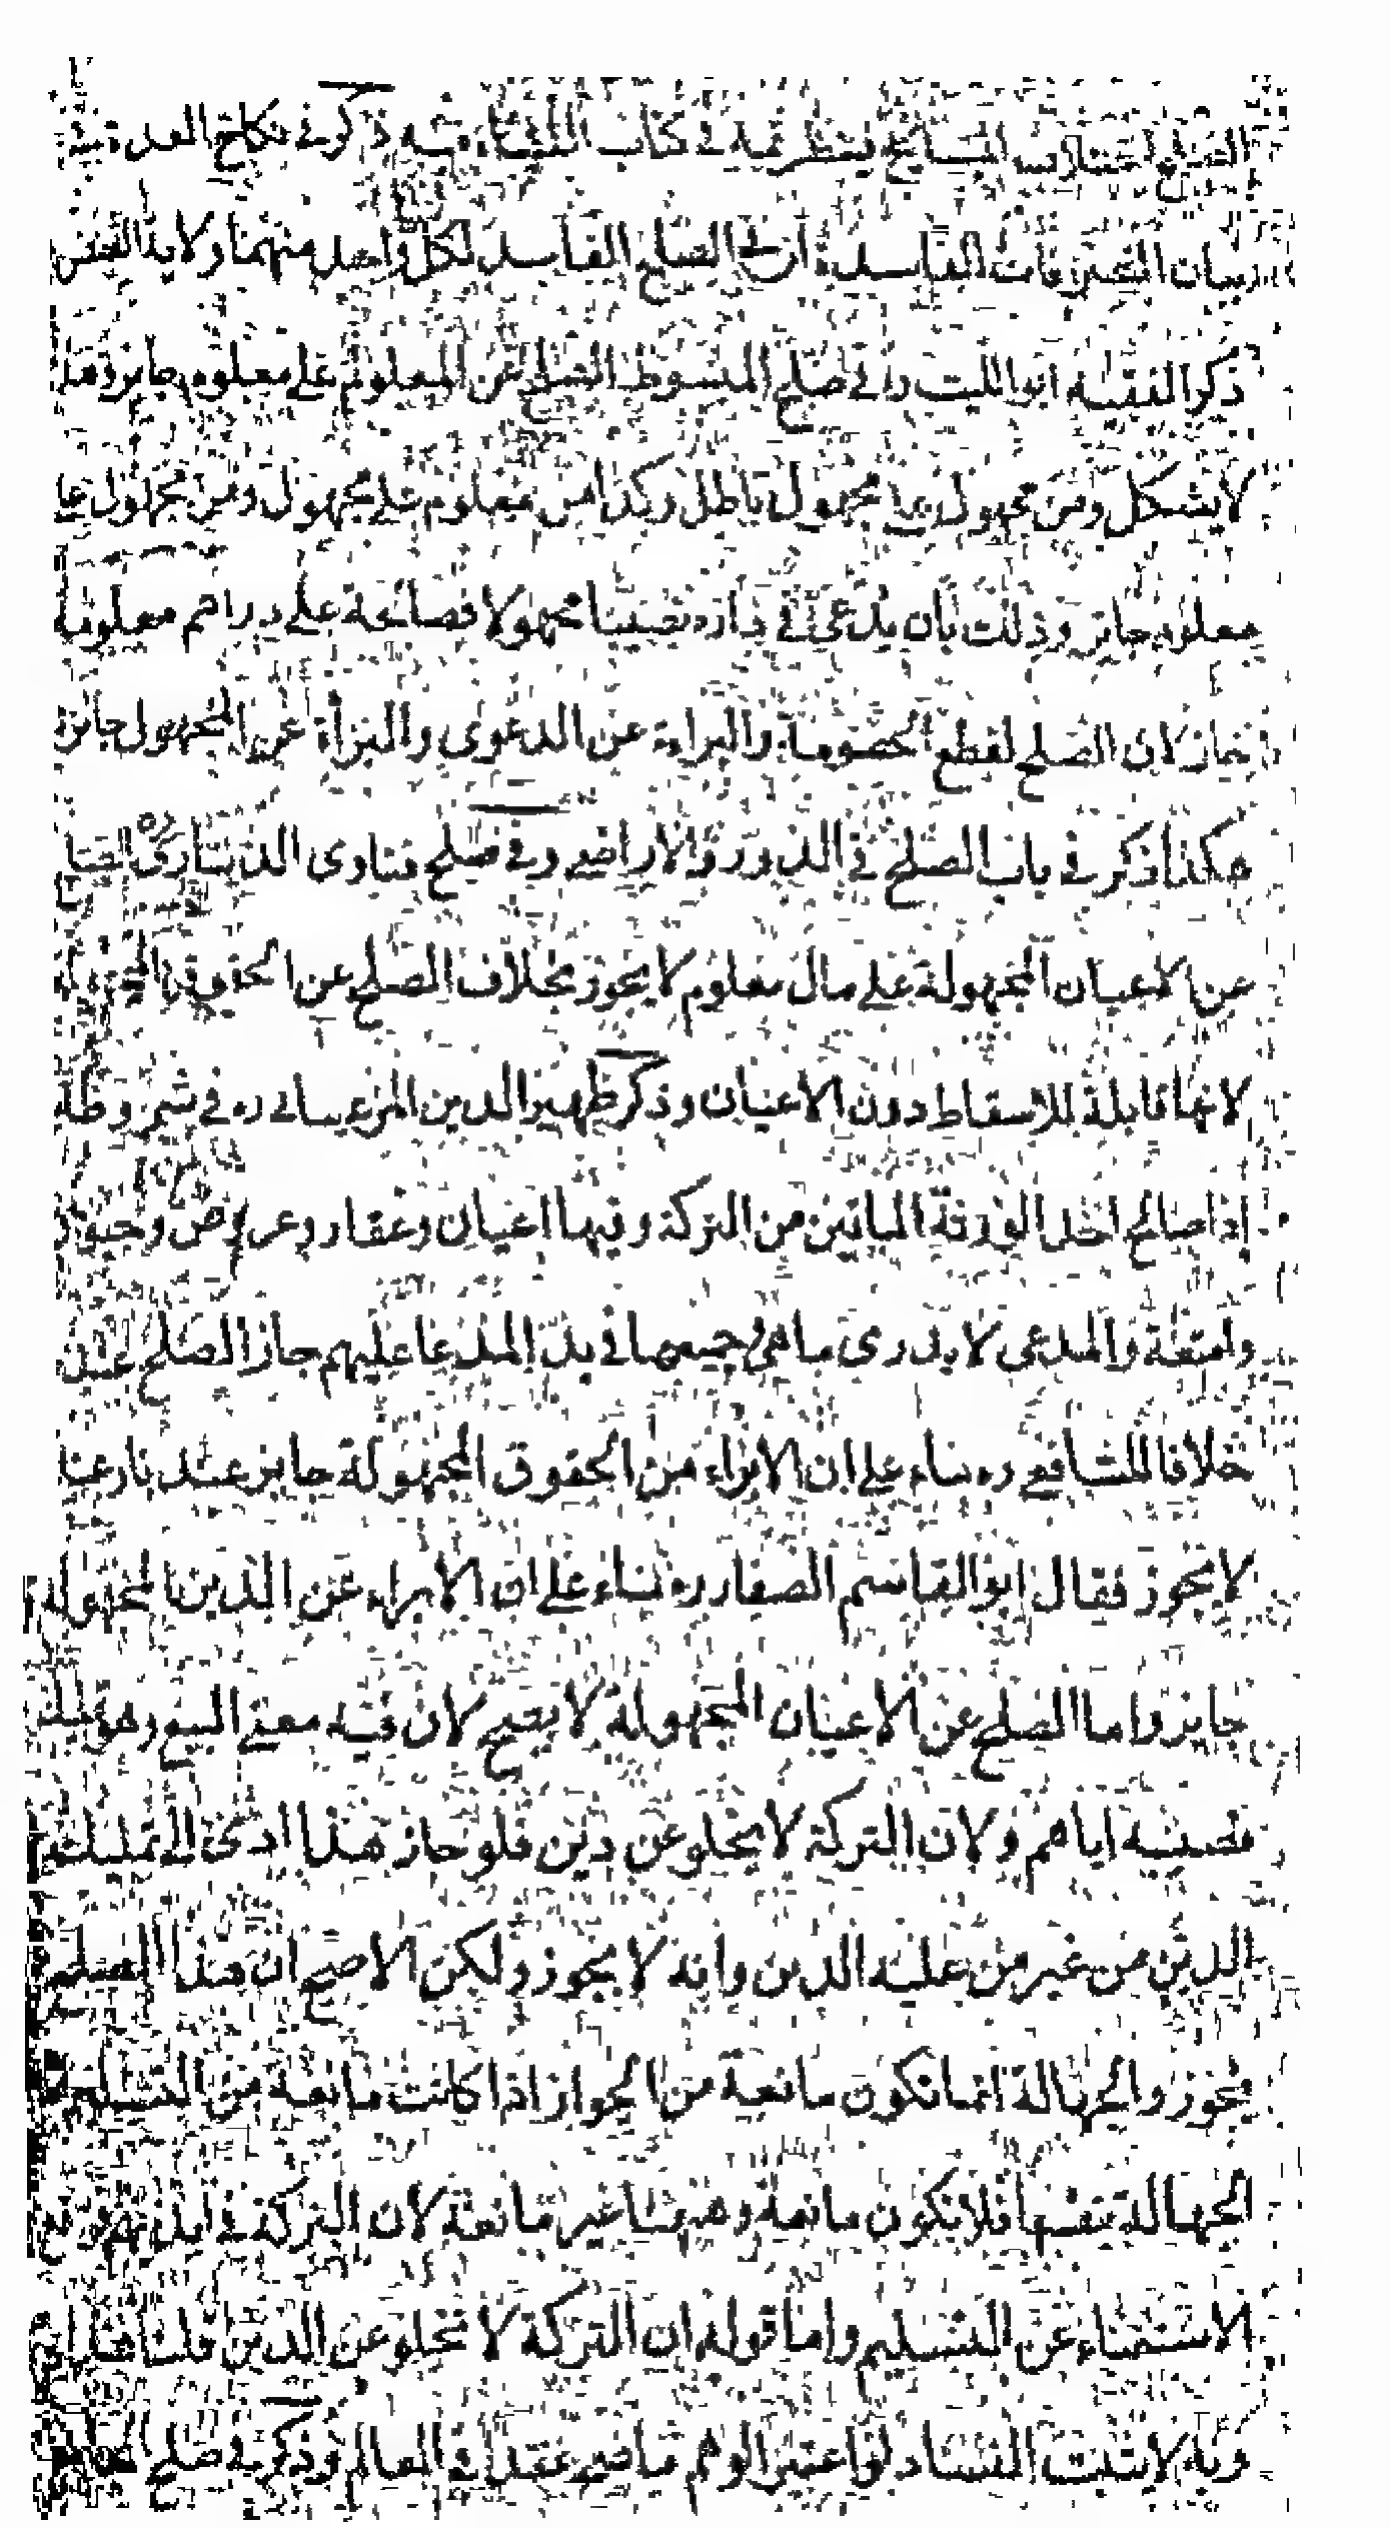 في كتاب ذكر في نكاح العدة
بيان التصرفات الفاسدة ان في الصلح الفاسد لكل واحد منهما ولاية النقض
ذكر الفقيه ابو الليث ره في صلح المبسوط الصلح عن المعلوم على معلوم جايز وهذا
لا يشكل ومن مجهول على مجهول باطل وكذا من معلوم على مجهول ومن مجهول على
معلوم جايز وذلك بان يدعى في داره نصيبا مجهولا فصالحه على دراهم معلومة
جاز لان الصلح لقطع الخصومة والبراءة عن الدعوى والبراءة عن المجهول جائزة
هكذا ذكر في باب الصلح في الدور والاراضي وفي صلح فتاوى الديناري الصلح
عن الاعيان المجهولة على مال معلوم لا يجوز بخلاف الصلح عن الحقوق
لانها قابلة للاسقاط دون الاعيان وذكر ظهير الدين المرغيناني ره في شروطه
اذا صالح احد الورثة الباقين من التركة وفيها اعيان وعقار وعروض وحيوان
وامتعة والمدعي لا يدري ما هي جميعها في يد المدعا عليهم جاز الصلح عندنا
خلافا للشافعي ره بناء على ان الابراء من الحقوق المجهولة جايز عندنا وعنده
لا يجوز فقال ابو القاسم الصفار ره بناء على ان الابراء عن الديون المجهولة
جايز واما الصلح عن الاعيان المجهولة لا يصح لان فيه معنى البيع وهو
نصيبه اياهم ولان التركة لا يخلو عن دين فلو جاز هذا ادى الى تمليك
الدين من غير من عليه الدين وانه لا يجوز ولكن الاصح ان هذا الصلح
يجوز والجهالة انما تكون مانعة من الجواز اذا كانت مانعة من التسليم
الجهالة بنفسها فلا تكون مانعة وههنا غير مانعة لان التركة في ايديهم فوقع
الاستغناء عن التسليم واما قوله ان التركة لا تخلو عن الدين قلنا هذا
وبه لا يثبت الفساد لو اعتبر الوهم ما صح عقد في العالم وذكر في صلح